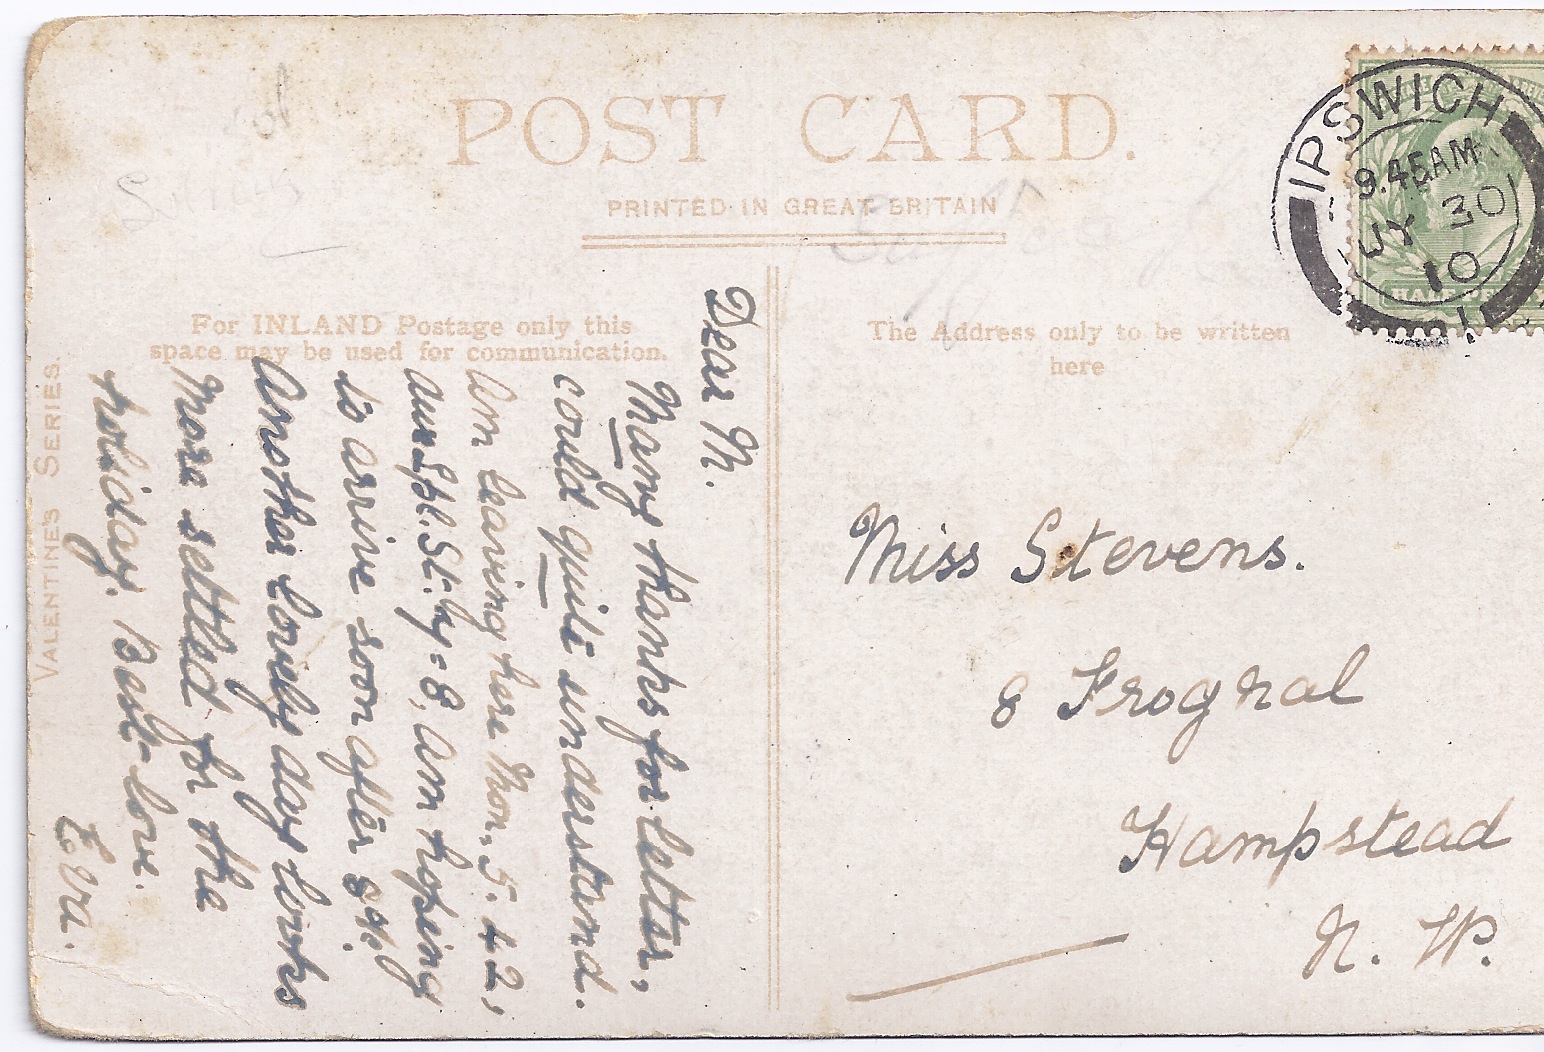 POST CARD.
PRINTED IN GREAT BRITAIN
For INLAND Postage only this
space may be used for communication.
The Address only to be written
here
VALENTINE'S SERIES.
IPSWICH
9.45AM
JY 30
10
HALF PENNY
Dear M.
Many thanks for letter,
could quite understand.
Am leaving here Mon, 5.42,
due L'pl. St. by = 8, am hoping
to arise soon after 8.
Another lovely day looks
more settled for the
holiday. Best-love.
Eva.
Miss Stevens.
8 Frognal
Hampstead
N. W.